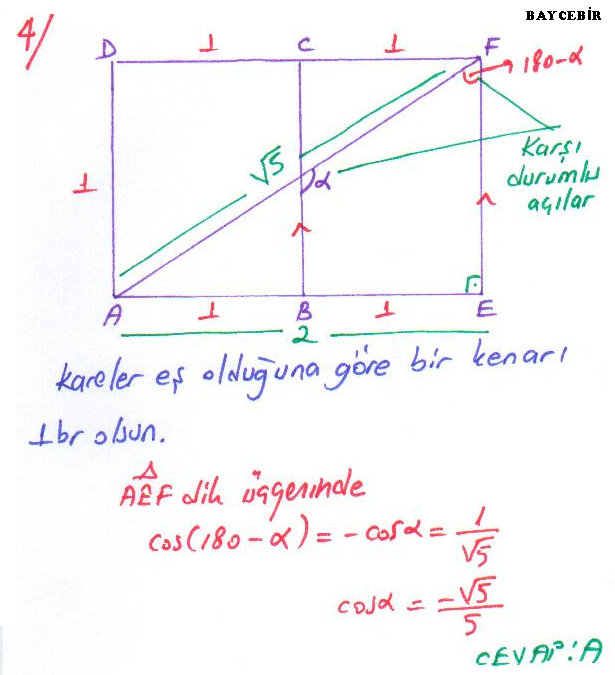 BAYCEBİR
4/
D 1 C 1 F
180-α
√5
α
Karşı
durumlu
açılar
1
A 1 B 1 E
2
Kareler eş olduğuna göre bir kenarı
1br olsun.
AEF dik üçgeninde
cos(180-α) = -cosα = 1/√5
cosα = -√5/5
CEVAP:A